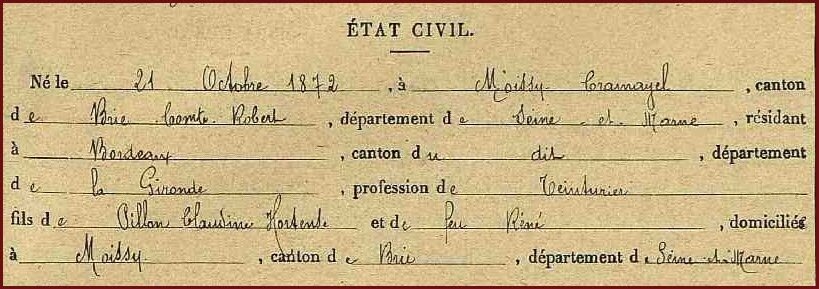 ÉTAT CIVIL.
Né le 21 Octobre 1872, à Moissy Cramayel, canton
de Brie Comte Robert, département de Seine et Marne, résidant
à Bordeaux, canton du dit, département
de la Gironde, profession de Teinturier
fils de Pillon Claudine Hortense et de feu Réné, domiciliés
à Moissy, canton de Brie, département de Seine et Marne